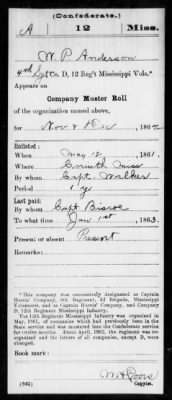 (Confederate.)
A 12 Miss.
W. P. Anderson
4th Sgt Co. D, 12 Reg't Mississippi Vols.*
Appears on
Company Muster Roll
of the organization named above,
for Nov & Dec, 1862.
Enlisted:
When May 12, 1861.
Where Corinth Miss
By whom Capt. Walker
Period 1 y
Last paid:
By whom Capt Biscoe
To what time Jany 1st, 1863.
Present or absent Present
Remarks:
*This company was successively designated as Captain
Harris' Company, 6th Regiment, 2d Brigade, Mississippi
Volunteers, and as Captain Harris' Company, and Company
D, 12th Regiment Mississippi Infantry.
The 12th Regiment Mississippi Infantry was organized in
May, 1861, of companies which had previously been in the
State service and was mustered into the Confederate service
for twelve months. About April, 1862, the regiment was re-
organized and the letters of all companies, except D, were
changed.
Book mark:
(642) Copyist.